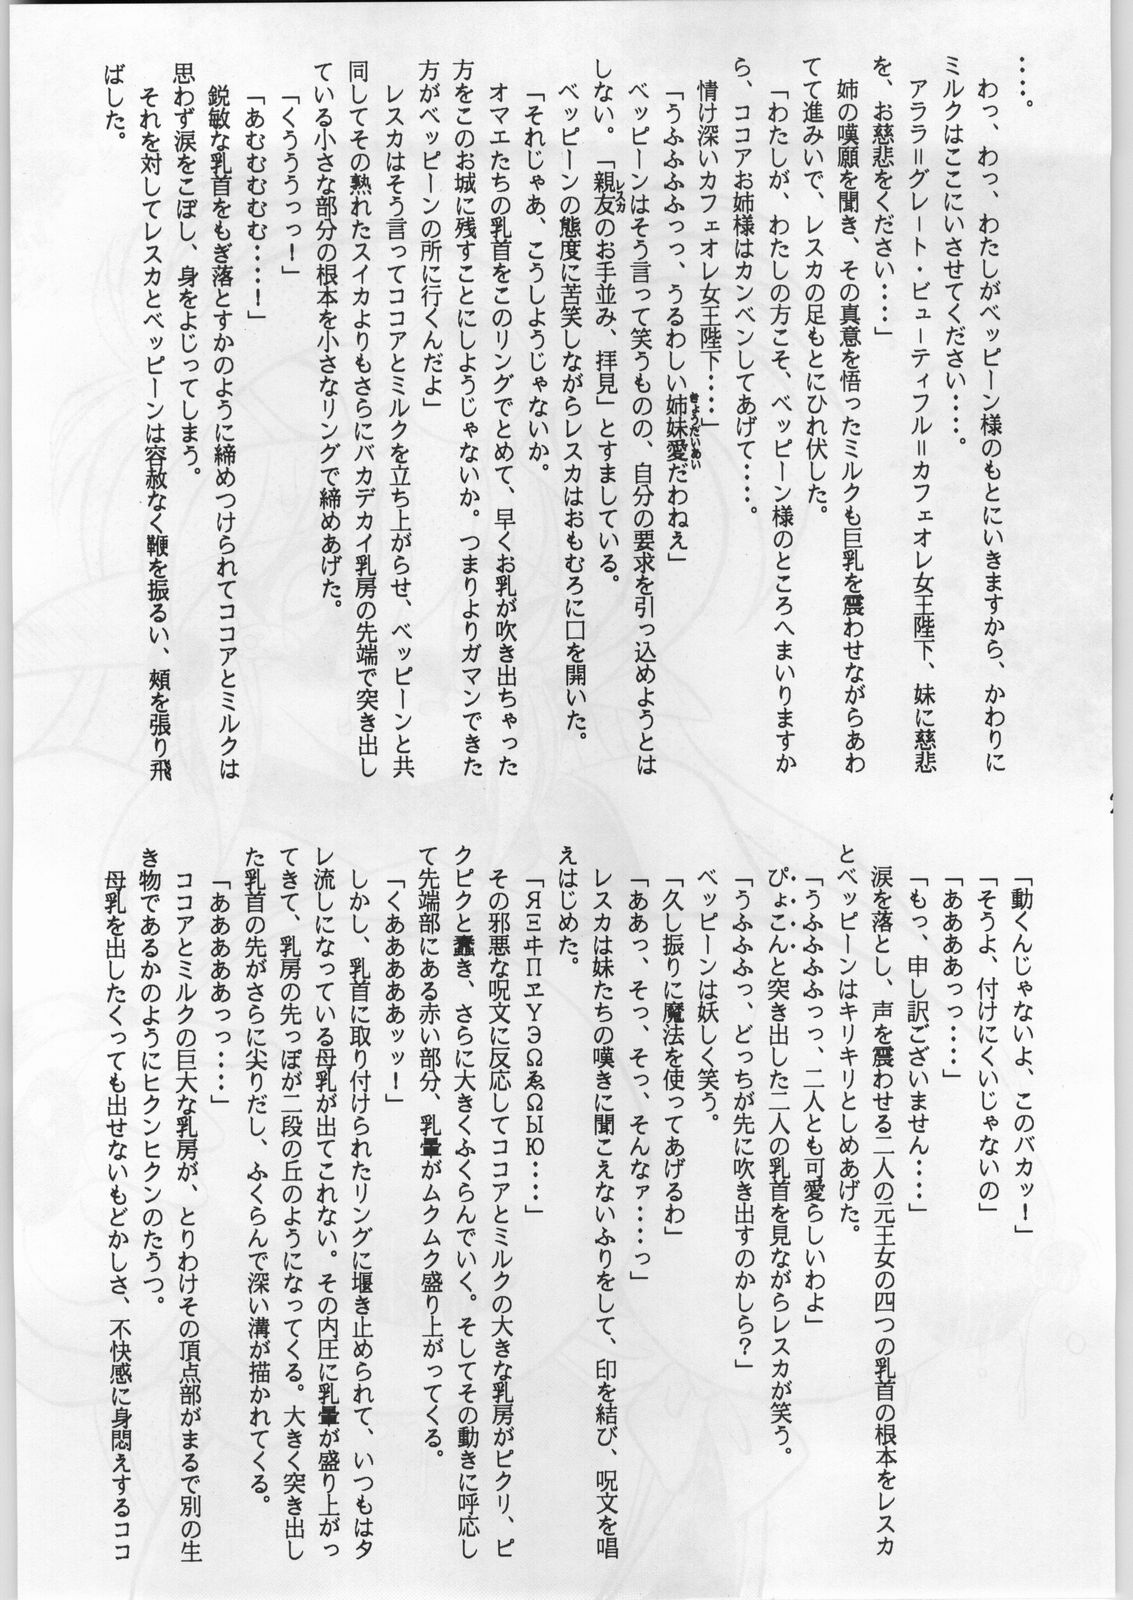 ‥‥。
わっ、わっ、わたしがベッピーン様のもとにいきますから、かわりに
ミルクはここにいさせてください‥‥。
アララ＝グレート・ビューティフル＝カフェオレ女王陛下、妹に慈悲
を、お慈悲をください‥‥」
姉の嘆願を聞き、その真意を悟ったミルクも巨乳を震わせながらあわ
てて進みいで、レスカの足もとにひれ伏した。
「わたしが、わたしの方こそ、ベッピーン様のところへまいりますか
ら、ココアお姉様はカンベンしてあげて‥‥。
情け深いカフェオレ女王陛下‥‥」
「うふふふふっっ、うるわしい姉妹愛だわねぇ」
きょうだいあい
ベッピーンはそう言って笑うものの、自分の要求を引っ込めようとは
しない。「親友のお手並み、拝見」とすましている。
レスカ
ベッピーンの態度に苦笑しながらレスカはおもむろに口を開いた。
「それじゃあ、こうしようじゃないか。
オマエたちの乳首をこのリングでとめて、早くお乳が吹き出ちゃった
方をこのお城に残すことにしようじゃないか。つまりよりガマンできた
方がベッピーンの所に行くんだよ」
レスカはそう言ってココアとミルクを立ち上がらせ、ベッピーンと共
同してその熟れたスイカよりもさらにバカデカイ乳房の先端で突き出し
ている小さな部分の根本を小さなリングで締めあげた。
「くうううっっ！」
「あむむむむむ‥‥！」
鋭敏な乳首をもぎ落とすかのように締めつけられてココアとミルクは
思わず涙をこぼし、身をよじってしまう。
それを対してレスカとベッピーンは容赦なく鞭を振るい、頰を張り飛
ばした。
「動くんじゃないよ、このバカッ！」
「そうよ、付けにくいじゃないの」
「ああああっっ‥‥」
「もっ、申し訳ございません‥‥」
涙を落とし、声を震わせる二人の元王女の四つの乳首の根本をレスカ
とベッピーンはキリキリとしめあげた。
「うふふふふっっ、二人とも可愛らしいわよ」
ぴょこんと突き出した二人の乳首を見ながらレスカが笑う。
「うふふふっ、どっちが先に吹き出すのかしら？」
ベッピーンは妖しく笑う。
「久し振りに魔法を使ってあげるわ」
「ああっ、そっ、そっ、そんなァ‥‥っ」
レスカは妹たちの嘆きに聞こえないふりをして、印を結び、呪文を唱
えはじめた。
「ЯΞヰΠヱYЭΩゑΩЫЮ‥‥」
その邪悪な呪文に反応してココアとミルクの大きな乳房がピクリ、ピ
クピクと蠢き、さらに大きくふくらんでいく。そしてその動きに呼応し
て先端部にある赤い部分、乳暈がムクムク盛り上がってくる。
「くあああああッッ！」
しかし、乳首に取り付けられたリングに堰き止められて、いつもはタ
レ流しになっている母乳が出てこれない。その内圧に乳暈が盛り上がっ
てきて、乳房の先っぽが二段の丘のようになってくる。大きく突き出し
た乳首の先がさらに尖りだし、ふくらんで深い溝が描かれてくる。
「あああああっっ‥‥」
ココアとミルクの巨大な乳房が、とりわけその頂点部がまるで別の生
き物であるかのようにヒクンヒクンのたうつ。
母乳を出したくっても出せないもどかしさ、不快感に身悶えするココ